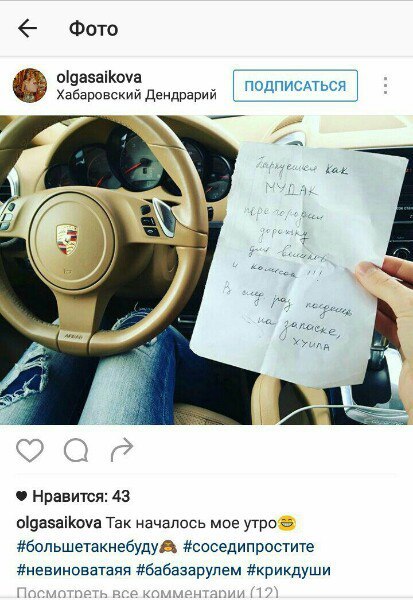 Фото
olgasaikova
Хабаровский Дендрарий
ПОДПИСАТЬСЯ
Паркуешься как
МУДАК
перегородил
дорожку
для великов
и колясок !!!
В след раз поедешь
на запаске,
ХУИЛА
AIRBAG
Нравится: 43
olgasaikova Так началось мое утро😄
#большетакнебуду🙈 #соседипростите
#невиноватаяя #бабазарулем #крикдуши
Посмотреть все комментарии (12)